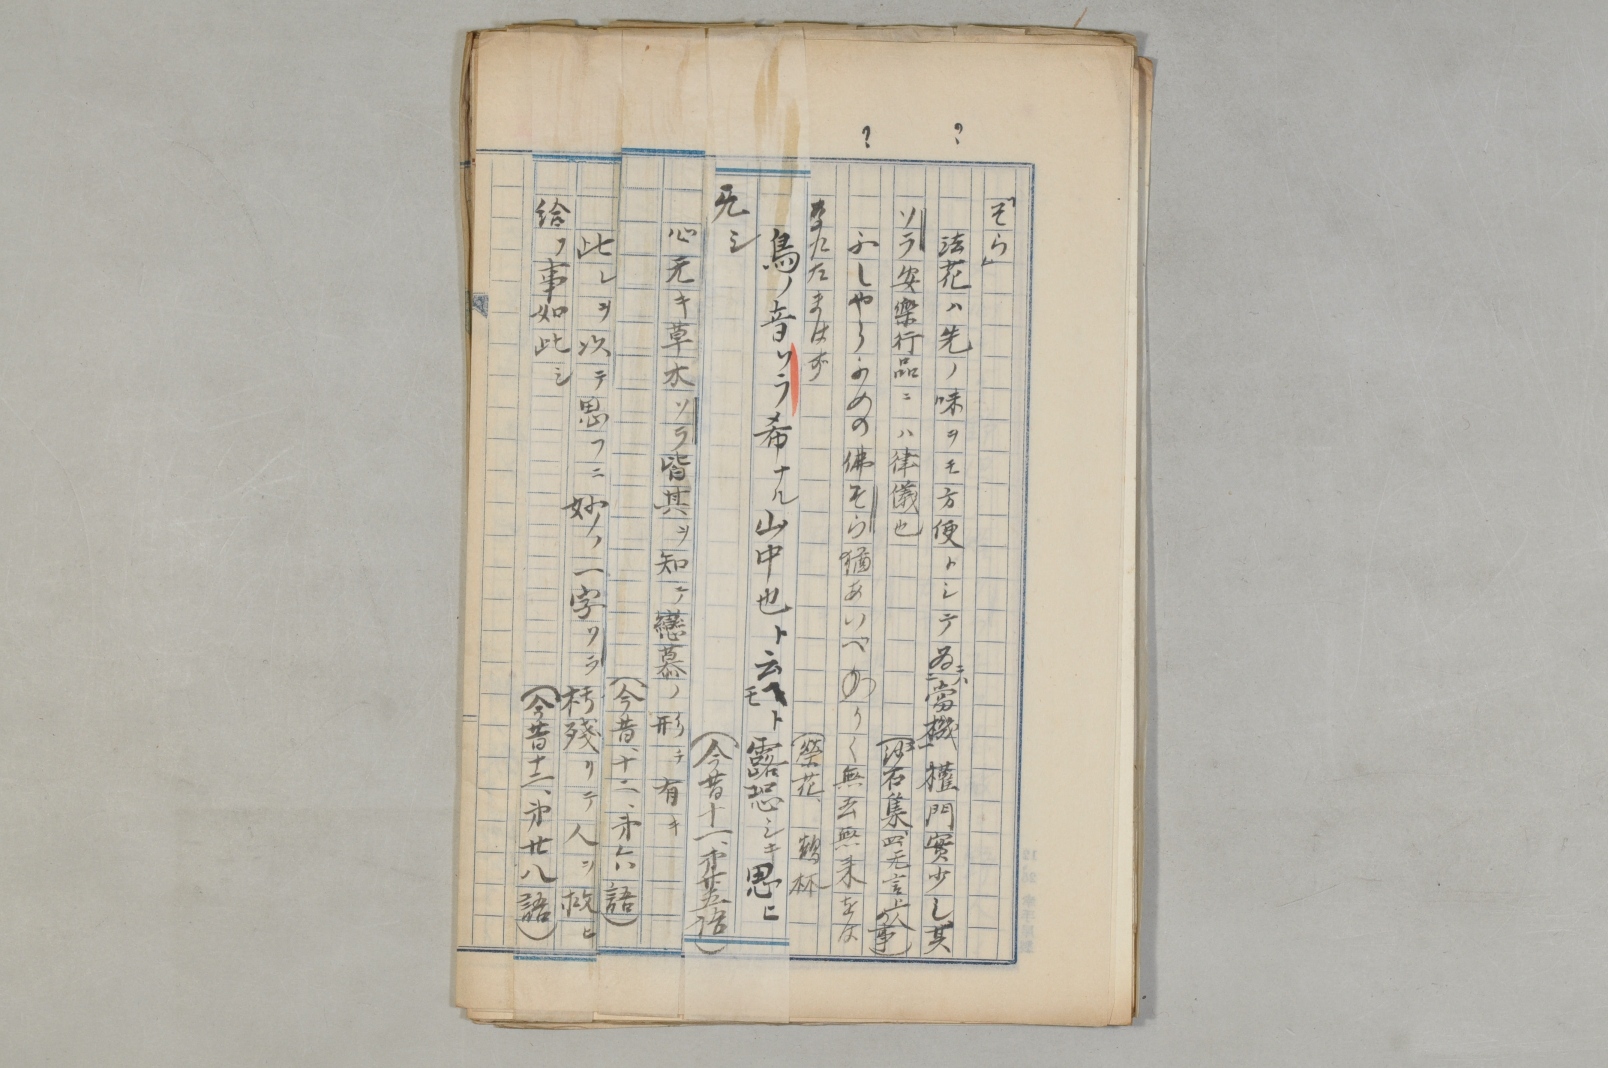 ？
？
「そら」
法花ハ先ノ味ヲモ方便トシテ為ニ當機ニハ權門實少し其
ソラ安樂行品ニハ律儀也
（沙石集四 无言上人事）
ふしやうめの佛そら猶あいべからく無去無来をは
なれたまはず
（榮花、鶴林
鳥ノ音ソラ希ナル山中也ト云ヘトモ露恐シキ思ヒ
无シ
（今昔十一、第廿五語）
心无キ草木ソラ皆其ヲ知テ戀慕ノ形チ有キ
（今昔、十二、第六語）
此レヲ次テ思フニ妙ノ一字ソラ朽殘リテ人ヲ救ヒ
給フ事如此シ
（今昔十二、第廿八語）